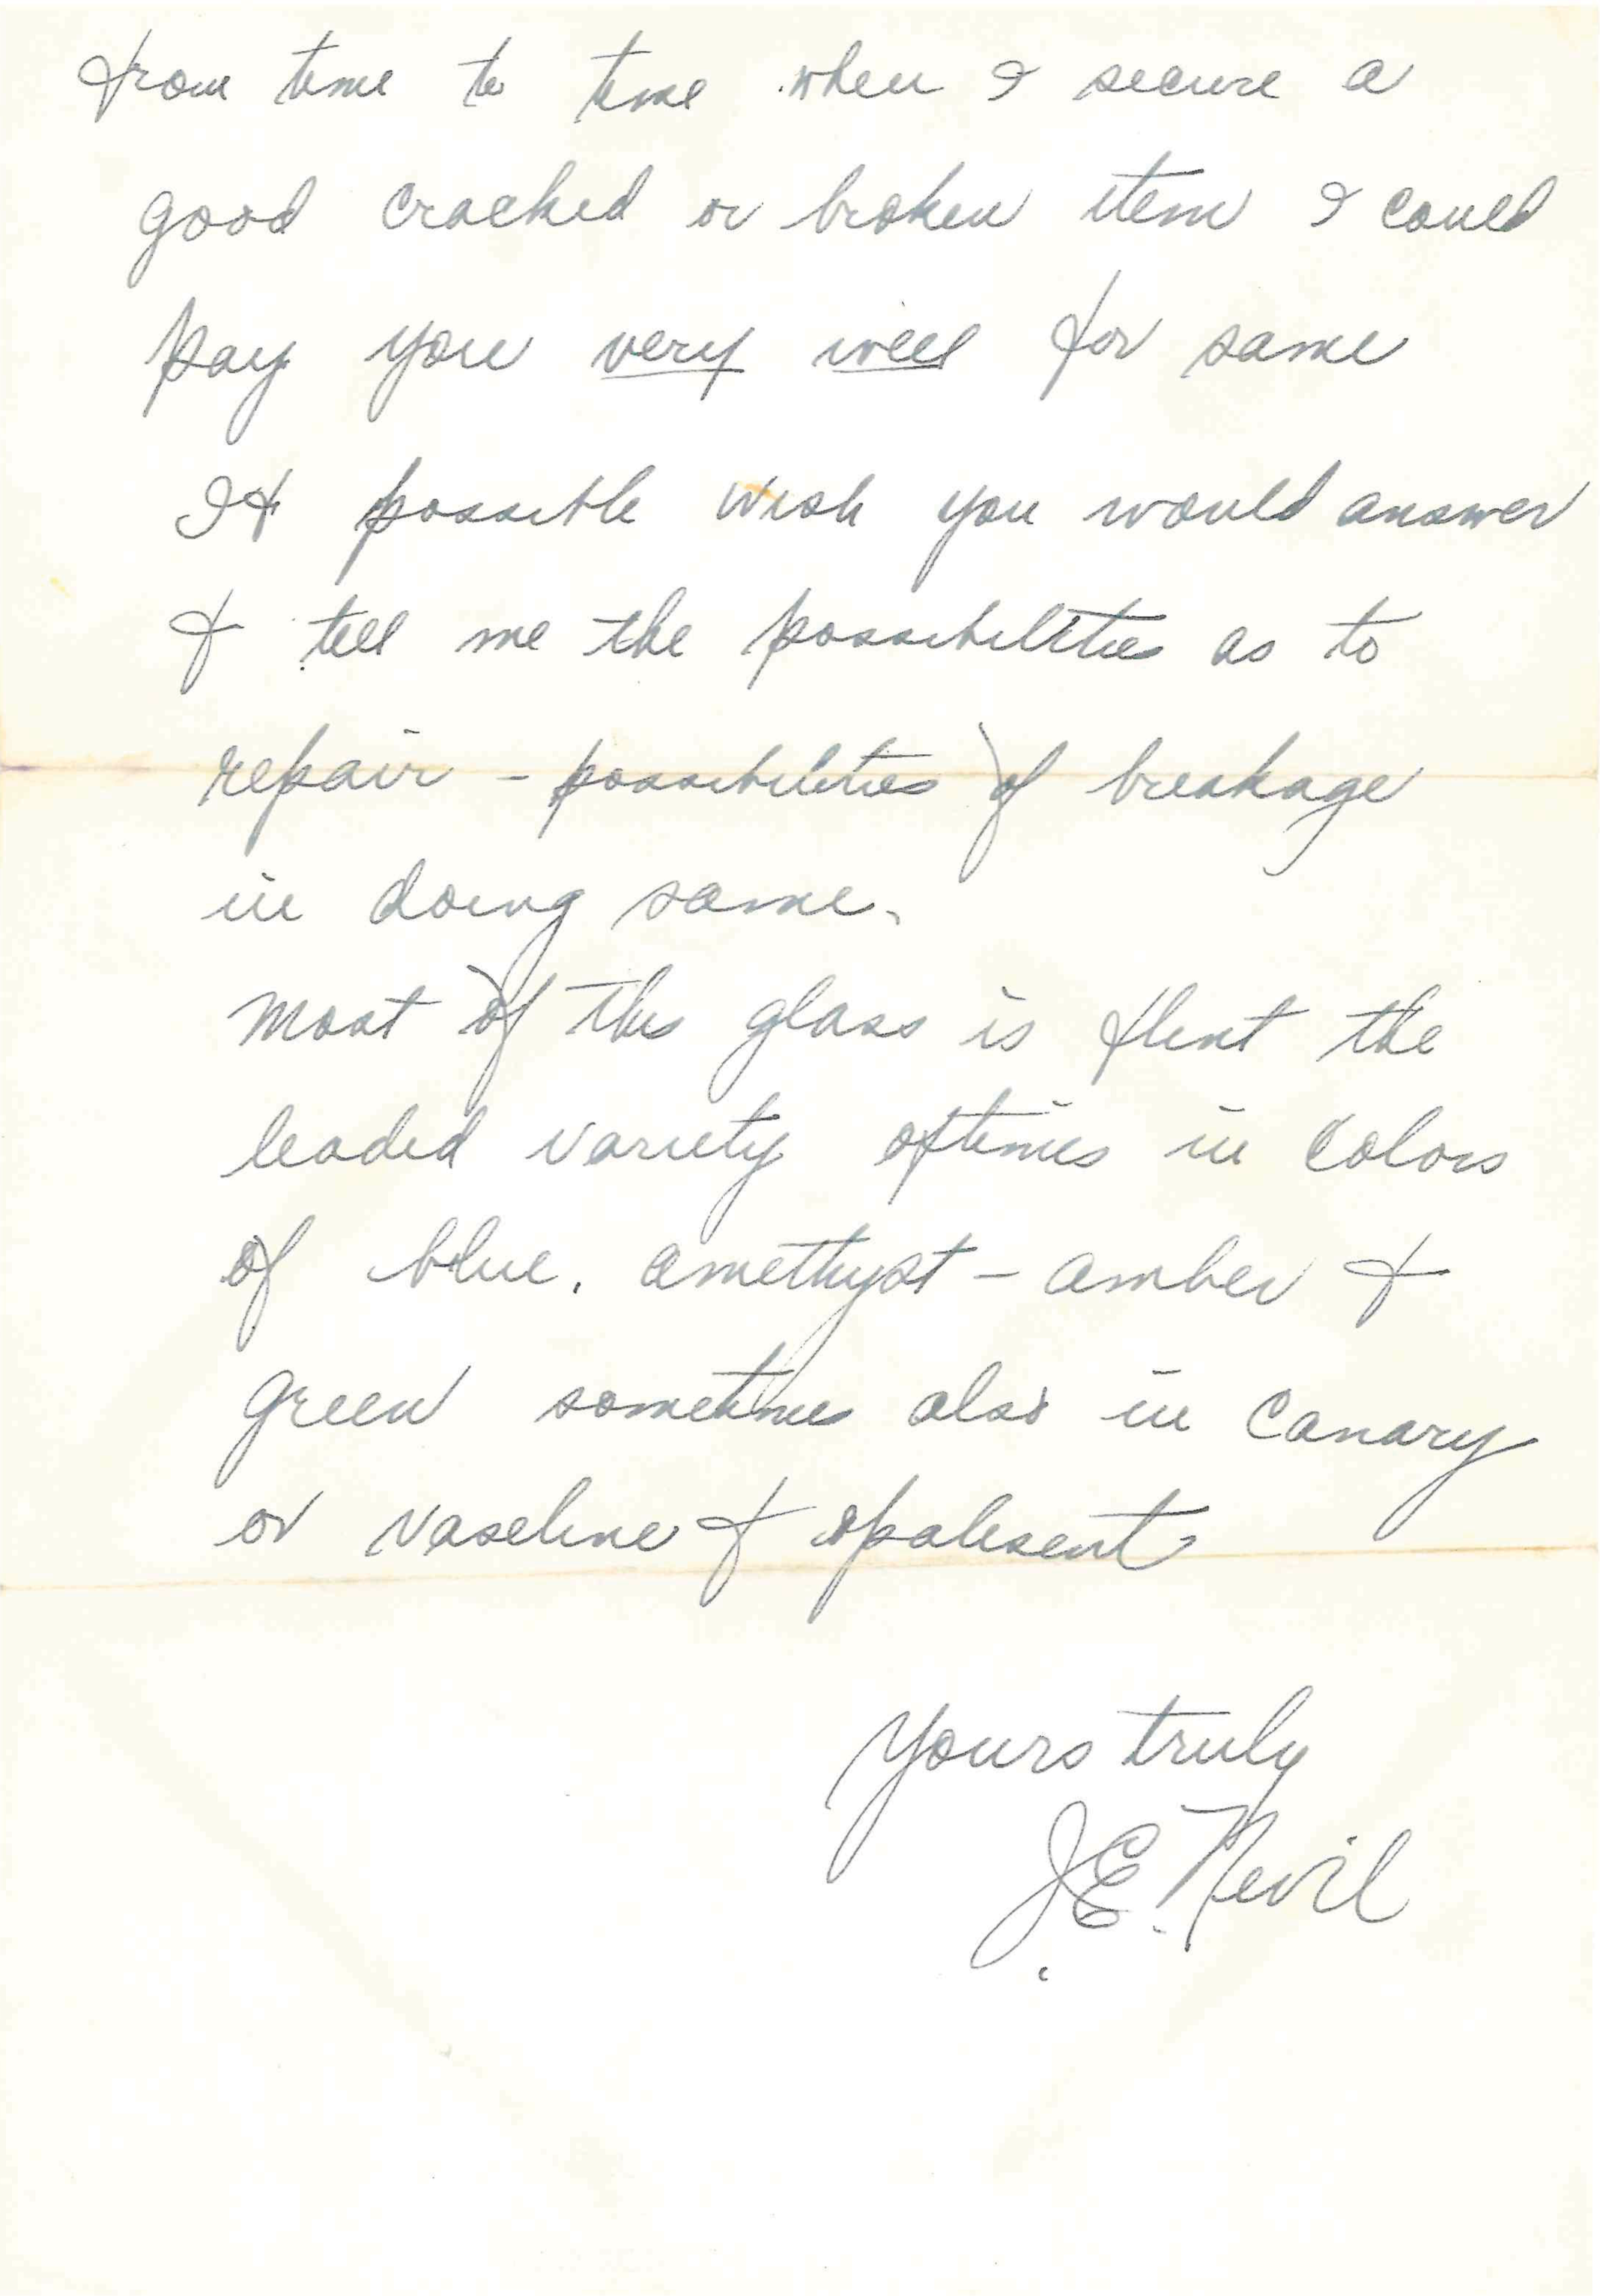 from time to time when I secure a
good cracked or broken item I could
pay you very well for same
If possible wish you would answer
& tell me the possibilities as to
repair - possibilities of breakage
in doing same.
Most of this glass is flint the
leaded variety oftimes in colors
of blue, amethyst - amber &
green sometimes also in canary
or vaseline & opalesent
Yours truly
J.E. Nevil